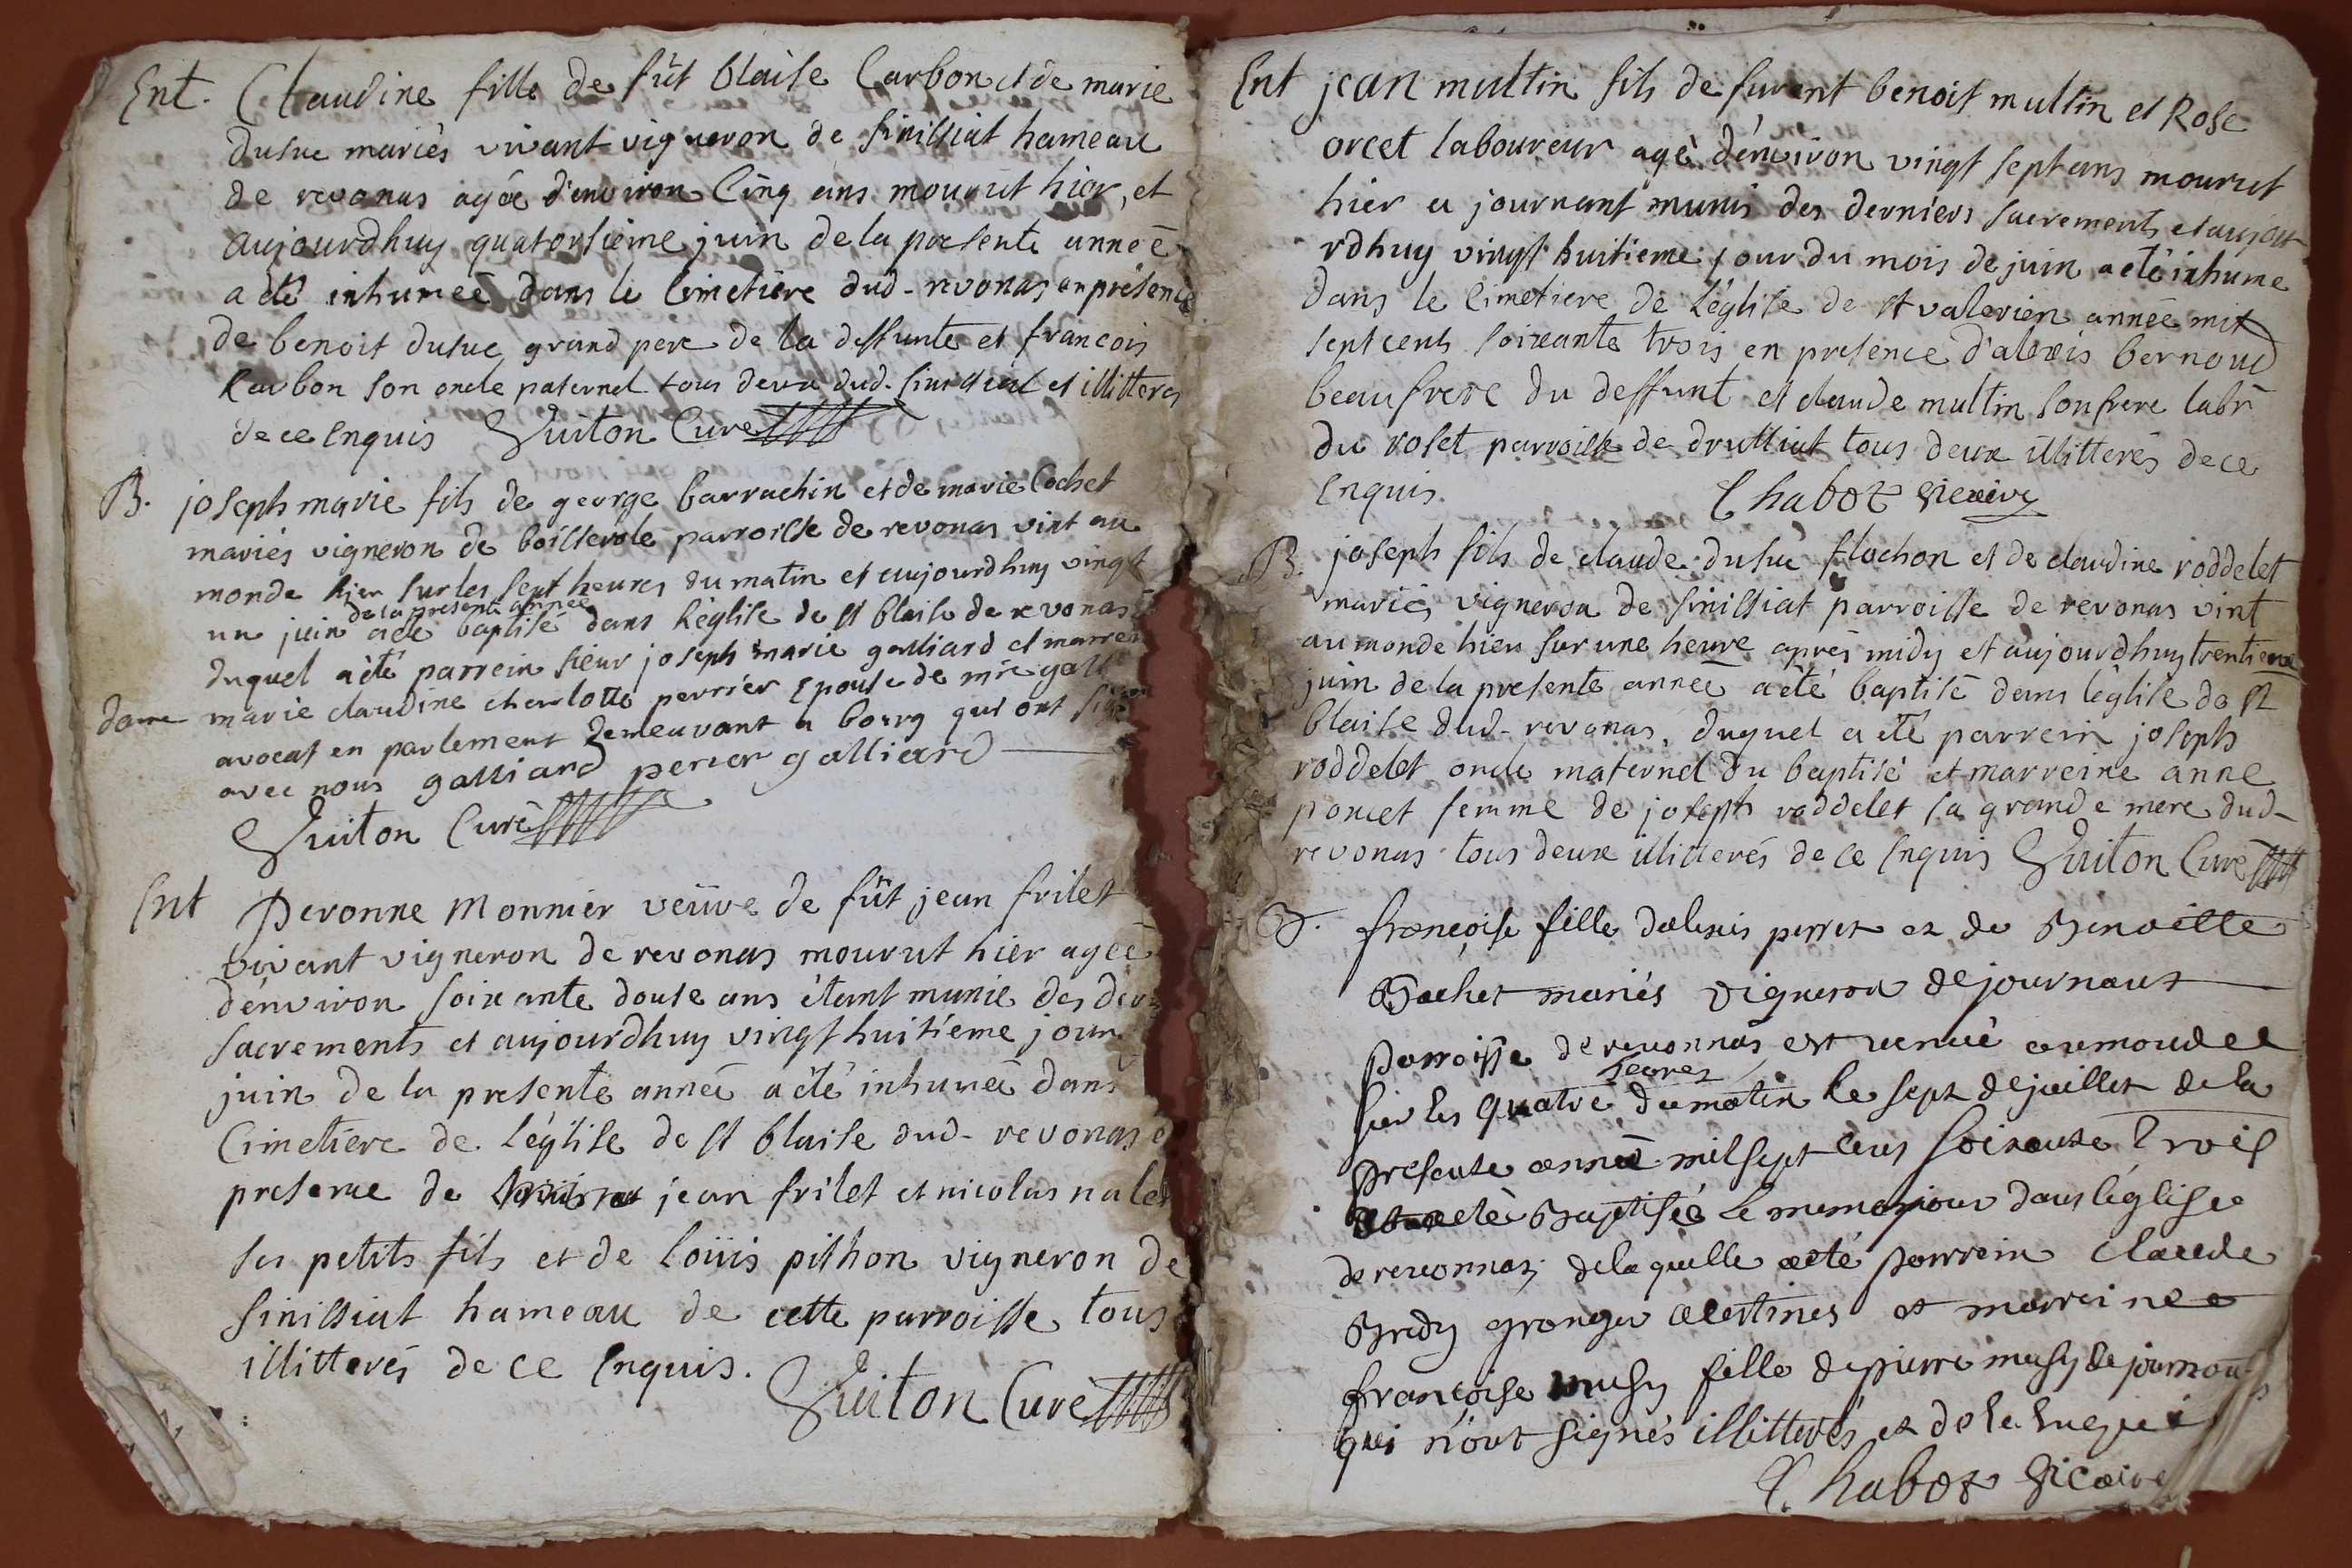 Ent. Claudine fille de fût blaise Carbon et de marie
dusuc mariés vivant vigneron de sinissiat hameau
de revonas agée d'environ Cinq ans mourut hier, et
aujourdhuy quatorsième juin de la presente année
a été inhumée dans le Cimetière dud. revonas en présence
de benoit dusuc grand pere de la deffunte et francois
Carbon son oncle paternel tous deux dud. sinissiat et illitterés
de ce Enquis Guiton Curé
B. joseph marie fils de george barrachin et de marie Cochet
mariés vigneron de boisserole parroisse de revonas vint au
monde hier sur les sept heures du matin et aujourdhuy vingt
de la presente année
un juin a été baptisé dans l'église de st blaise de revonas
duquel a été parrein sieur joseph marie galliard et marrei
dame marie claudine charlotte perrier Epouse de mre gall
avocat en parlement demeurant a bourg qui ont
avec nous galliard perier galliard
Guiton Curé
Ent Peronne Monnier veüve de fût jean frilet
vivant vigneron de revonas mourut hier agée
d'énviron soixante douse ans étant munie des der
sacrements et aujourdhuy vingt huitième jour
juin de la presente année a été inhumée dans
Cimetière de l'église de st blaise dud. revonas e
presence de jean frilet et nicolas nalet
ses petits fils et de loüis pithon vigneron de
sinissiat hameau de cette parroisse tous
illitterés de ce Enquis.
Guiton Curé
Ent jean multin fils de furent benoit multin et Rose
orcet laboureur agé d'énviron vingt sept ans mourut
hier a journant munis des derniers sacrements et aujou
rdhuy vingt huitieme jour du mois de juin a eté inhume
dans le Cimetiere de l'église de st valerien année mil
sept cents soixante trois en presence d'alexis bernoud
beaufrere du deffunt et claude multin son frere labr
du roset parroisse de drulliat tous deux illitterés de ce
Enquis. Chabot vicaire
B. joseph fils de claude dusuc flochon et de claudine roddelet
mariés vigneron de sinissiat parroisse de revonas vint
au monde hier sur une heure aprés midy et aujourdhuy trentieme
juin de la presente année a été baptisé dans l'église de st
blaise dud. revonas, duquel a été parrein joseph
roddelet oncle maternel du baptisé et marreine anne
poncet femme de joseph roddelet sa grande mere dud.
revonas tous deux illitterés de ce Enquis Guiton Curé
B. françoise fille dalexis perret et de Benoitte
Bachet mariés vigneron de journant
parroisse de revonnas est venuë au monde
heures
sur les quatre du matin le sept de juillet de la
presente année mil sept cens soixante trois
eté Baptisée le meme jour dans l'église
de revonnas, de laquelle a eté parrein Claude
Bredy granger celestines et marreine
françoise musy fille de pierre musy de journan
qui n'ont signés illitterés et de ce Enquis
Chabot vicaire